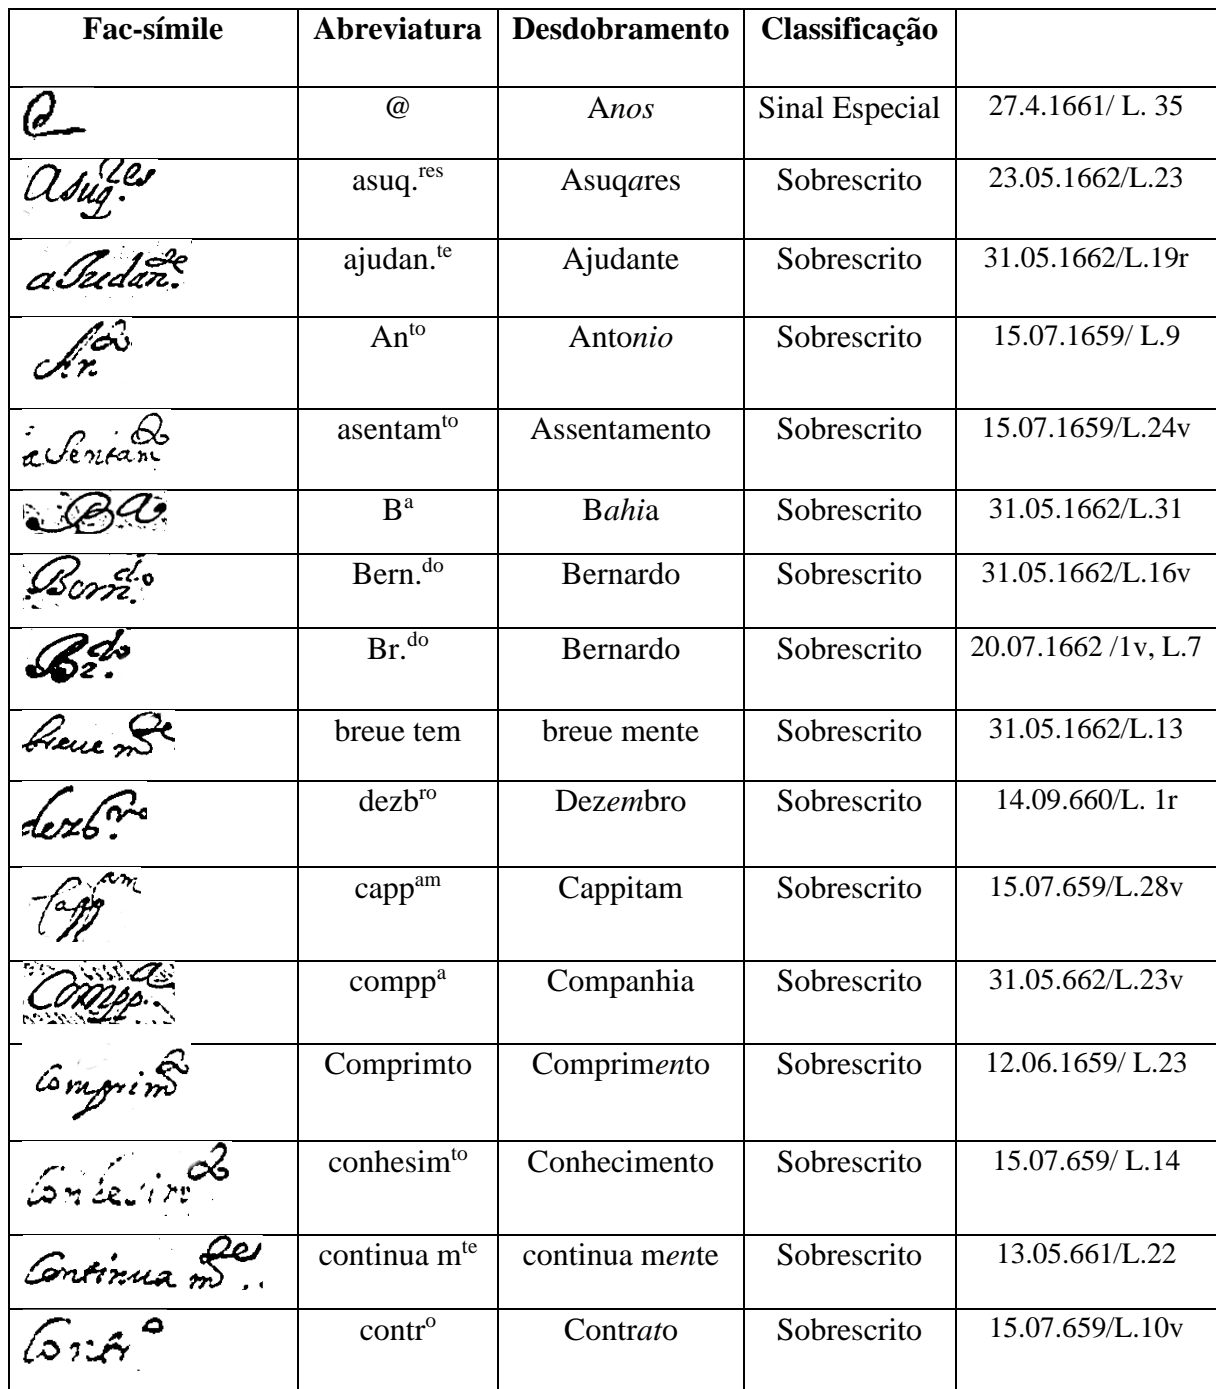 Fac-símile Abreviatura Desdobramento Classificação
@ Anos Sinal Especial 27.4.1661/ L. 35
asuq.res asuq.res Asuqares Sobrescrito 23.05.1662/L.23
aJudan.te ajudan.te Ajudante Sobrescrito 31.05.1662/L.19r
An.to Anto Antonio Sobrescrito 15.07.1659/ L.9
asentamto asentamto Assentamento Sobrescrito 15.07.1659/L.24v
Ba Ba Bahia Sobrescrito 31.05.1662/L.31
Bern.do Bern.do Bernardo Sobrescrito 31.05.1662/L.16v
Br.do Br.do Bernardo Sobrescrito 20.07.1662 /1v, L.7
breue mte breue tem breue mente Sobrescrito 31.05.1662/L.13
dezb.ro dezbro Dezembro Sobrescrito 14.09.660/L. 1r
Cappam cappam Cappitam Sobrescrito 15.07.659/L.28v
Compp.a comppa Companhia Sobrescrito 31.05.662/L.23v
Comprimto Comprimto Comprimento Sobrescrito 12.06.1659/ L.23
Conhesimto conhesimto Conhecimento Sobrescrito 15.07.659/ L.14
Continua mte continua mente Sobrescrito 13.05.661/L.22
Contro contro Contrato Sobrescrito 15.07.659/L.10v